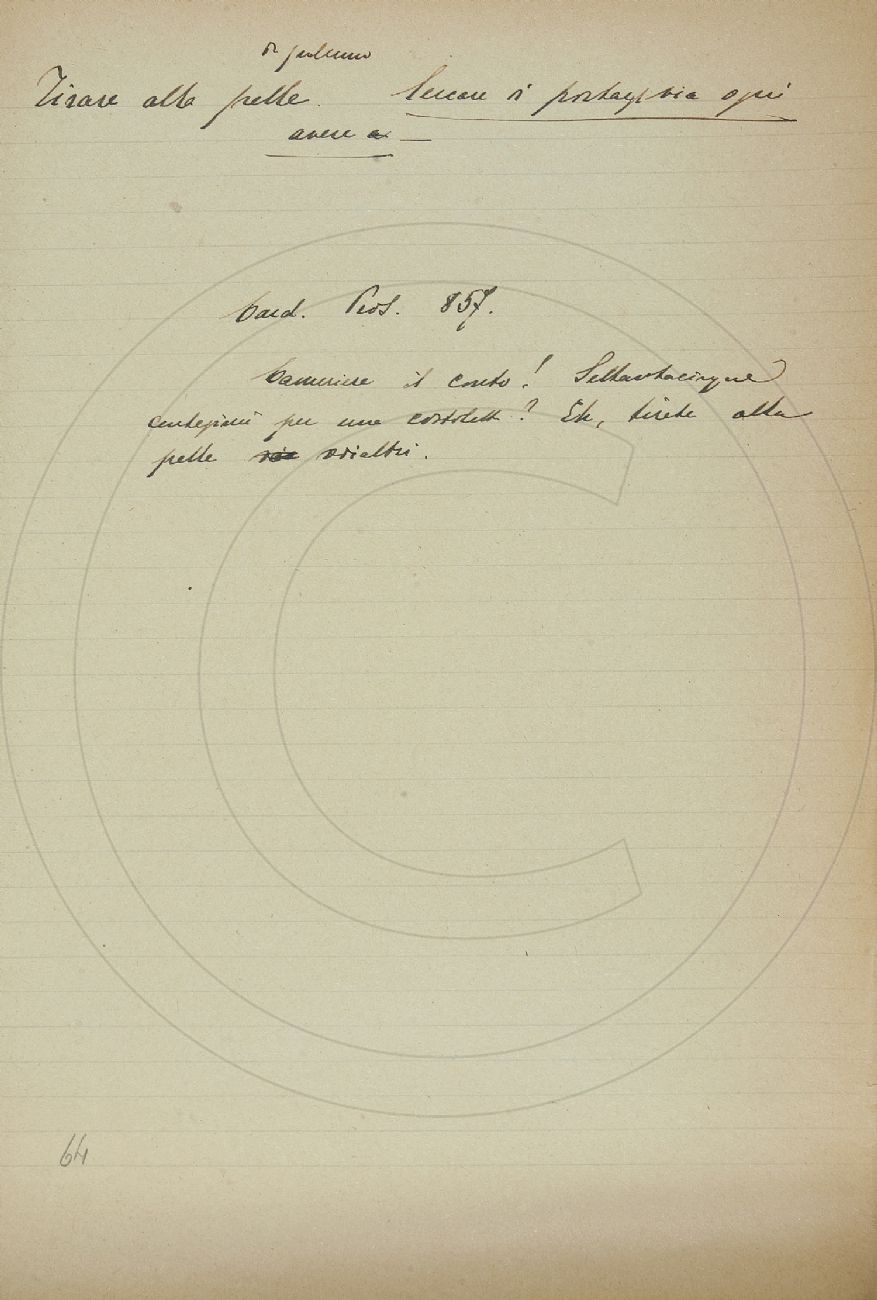 di qualcuno
Tirare alla pelle. Cercare di portargli via ogni
avere a —
Card. Pros. 857.
Cameriere il conto! Settantacinque
centesimi per una costoletta? Eh, tirate alla
pelle voialtri.
64